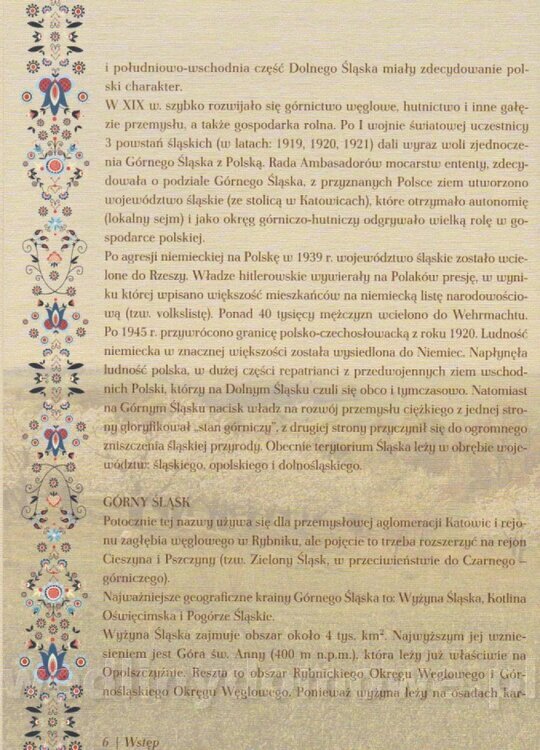 i południowo-wschodnia część Dolnego Śląska miały zdecydowanie pol-
ski charakter.
W XIX w. szybko rozwijało się górnictwo węglowe, hutnictwo i inne gałę-
zie przemysłu, a także gospodarka rolna. Po I wojnie światowej uczestnicy
3 powstań śląskich (w latach: 1919, 1920, 1921) dali wyraz woli zjednocze-
nia Górnego Śląska z Polską. Rada Ambasadorów mocarstw ententy, zdecy-
dowała o podziale Górnego Śląska, z przyznanych Polsce ziem utworzono
województwo śląskie (ze stolicą w Katowicach), które otrzymało autonomię
(lokalny sejm) i jako okręg górniczo-hutniczy odgrywało wielką rolę w go-
spodarce polskiej.
Po agresji niemieckiej na Polskę w 1939 r. województwo śląskie zostało wcie-
lone do Rzeszy. Władze hitlerowskie wywierały na Polaków presję, w wyni-
ku której wpisano większość mieszkańców na niemiecką listę narodowościo-
wą (tzw. volkslistę). Ponad 40 tysięcy mężczyzn wcielono do Wehrmachtu.
Po 1945 r. przywrócono granicę polsko-czechosłowacką z roku 1920. Ludność
niemiecka w znacznej większości została wysiedlona do Niemiec. Napłynęła
ludność polska, w dużej części repatrianci z przedwojennych ziem wschod-
nich Polski, którzy na Dolnym Śląsku czuli się obco i tymczasowo. Natomiast
na Górnym Śląsku nacisk władz na rozwój przemysłu ciężkiego z jednej stro-
ny gloryfikował „stan górniczy”, z drugiej strony przyczynił się do ogromnego
zniszczenia śląskiej przyrody. Obecnie terytorium Śląska leży w obrębie woje-
wództw: śląskiego, opolskiego i dolnośląskiego.
GÓRNY ŚLĄSK
Potocznie tej nazwy używa się dla przemysłowej aglomeracji Katowic i rejo-
nu zagłębia węglowego w Rybniku, ale pojęcie to trzeba rozszerzyć na rejon
Cieszyna i Pszczyny (tzw. Zielony Śląsk, w przeciwieństwie do Czarnego –
górniczego).
Najważniejsze geograficzne krainy Górnego Śląska to: Wyżyna Śląska, Kotlina
Oświęcimska i Pogórze Śląskie.
Wyżyna Śląska zajmuje obszar około 4 tys. km². Najwyższym jej wznie-
sieniem jest Góra św. Anny (400 m n.p.m.), która leży już właściwie na
Opolszczyźnie. Reszta to obszar Rybnickiego Okręgu Węglowego i Gór-
nośląskiego Okręgu Węglowego. Ponieważ wyżyna leży na osadach kar-
6 | Wstęp